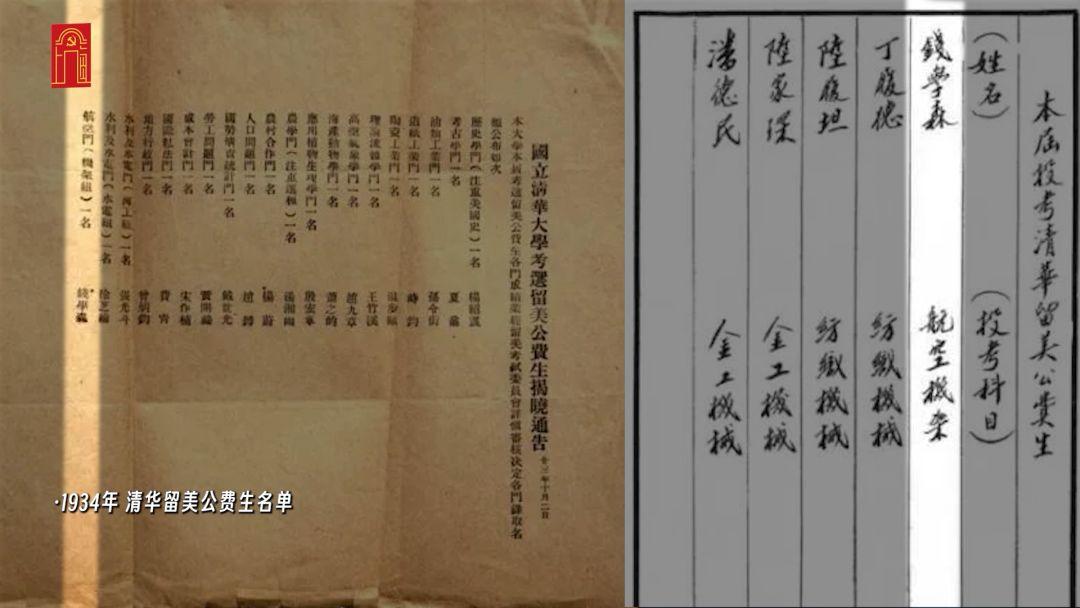 國立清華大學考選留美公費生揭曉通告 廿三年十月二日
本大學本屆考選留美公費生各門成績業經留美考試委員會詳慎審核決定各門錄取名
額公布如次
歷史學門（注重美國史）一名 楊紹震
考古學門一名 夏鼐
油類工業門一名 孫令銜
造紙工業門一名 時鈞
陶瓷工業門一名 溫步頤
理論流體學門一名 王竹溪
高空氣象學門一名 趙九章
海產動物學門一名 蕭之的
應用植物生理學門一名 殷宏章
農學門（注重選種）一名 湯湘雨
農村合作門一名 楊蔚
人口問題門一名 趙鎛
國勢清查統計門一名 戴世光
勞工問題門一名 黃開祿
成本會計門一名 宋作楠
國際私法門一名 費青
地方行政門一名 曾炳鈞
水利及水電門（ 工組）一名 張光斗
水利及水電門（水電組）一名 徐芝綸
航空門（機架組）一名 錢學森
·1934年 清华留美公费生名单
本屆投考清華留美公費生
（姓名） （投考科目）
錢學森 航空機架
丁履德 紡織機械
陸履坦 紡織機械
陸家琛 金工機械
潘德民 金工機械